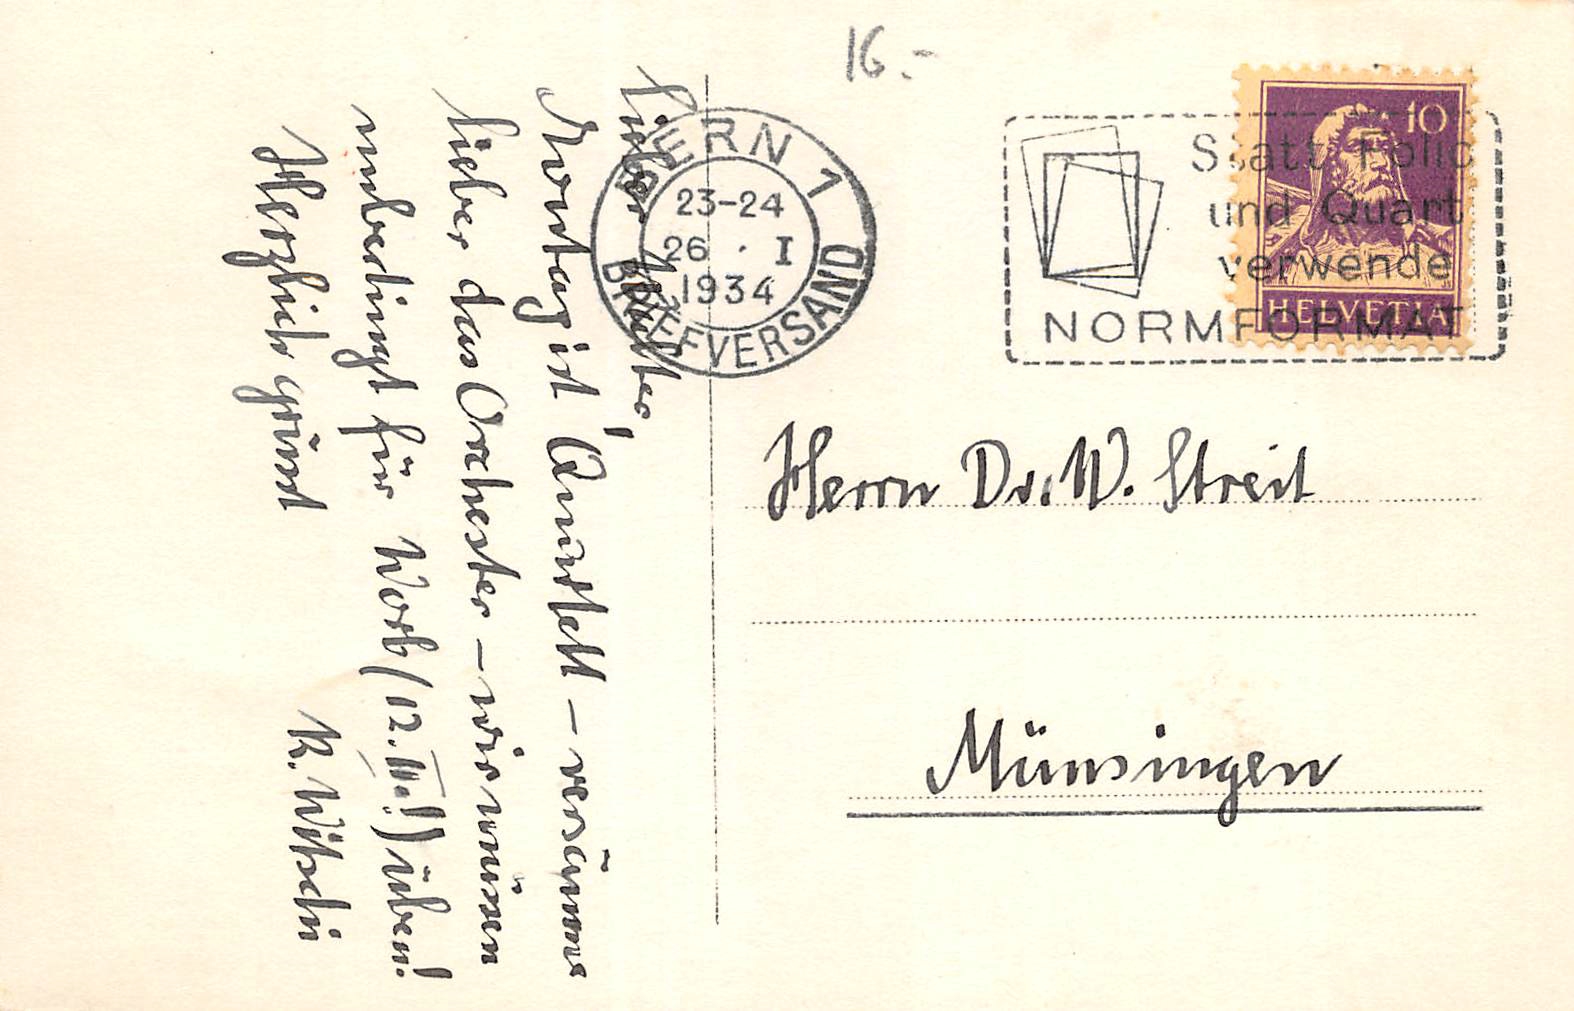 16.-
BERN 1
23-24
26 · I
1934
BRIEFVERSAND
Statt Folio
und Quart
verwende
NORMFORMAT
10
HELVETIA
Lieber
Montag ist Quartett – versäume
lieber das Orchester – wir müssen
unbedingt für Worb (12. III.!) üben!
Herzlich grüsst
K. Witschi
Herrn Dr. W. Streit
Münsingen